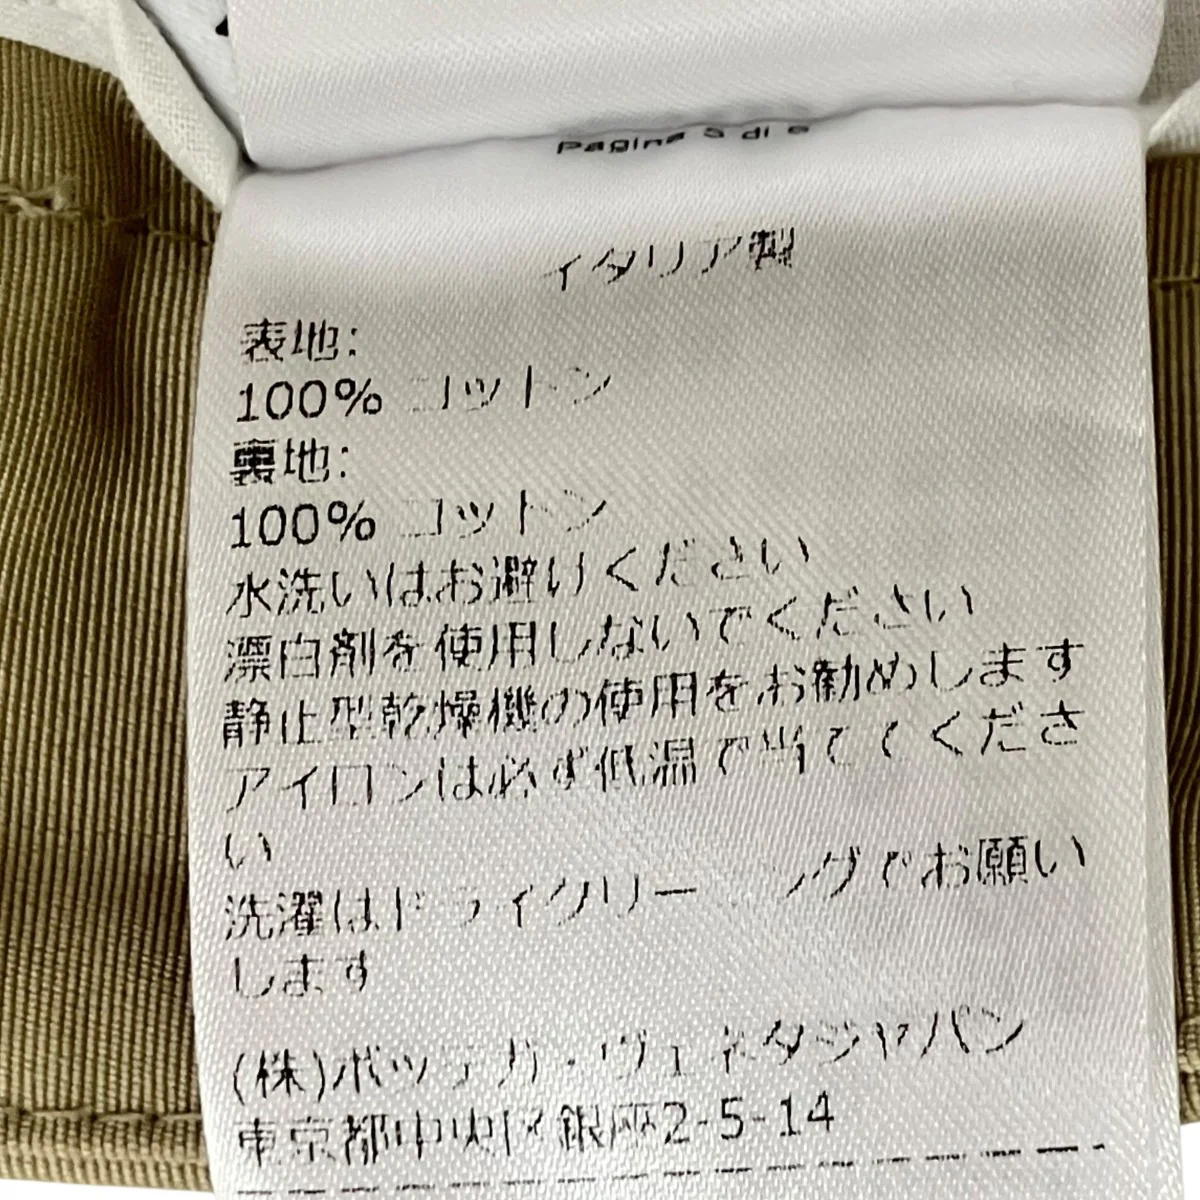 Pagina 5 di 6
イタリア製
表地:
100% コットン
裏地:
100% コットン
水洗いはお避けください
漂白剤を使用しないでください
静止型乾燥機の使用をお勧めします
アイロンは必ず低温で当ててくださ
い
洗濯はドライクリーニングでお願い
します
(株)ボッテガ・ヴェネタジャパン
東京都中央区銀座2-5-14